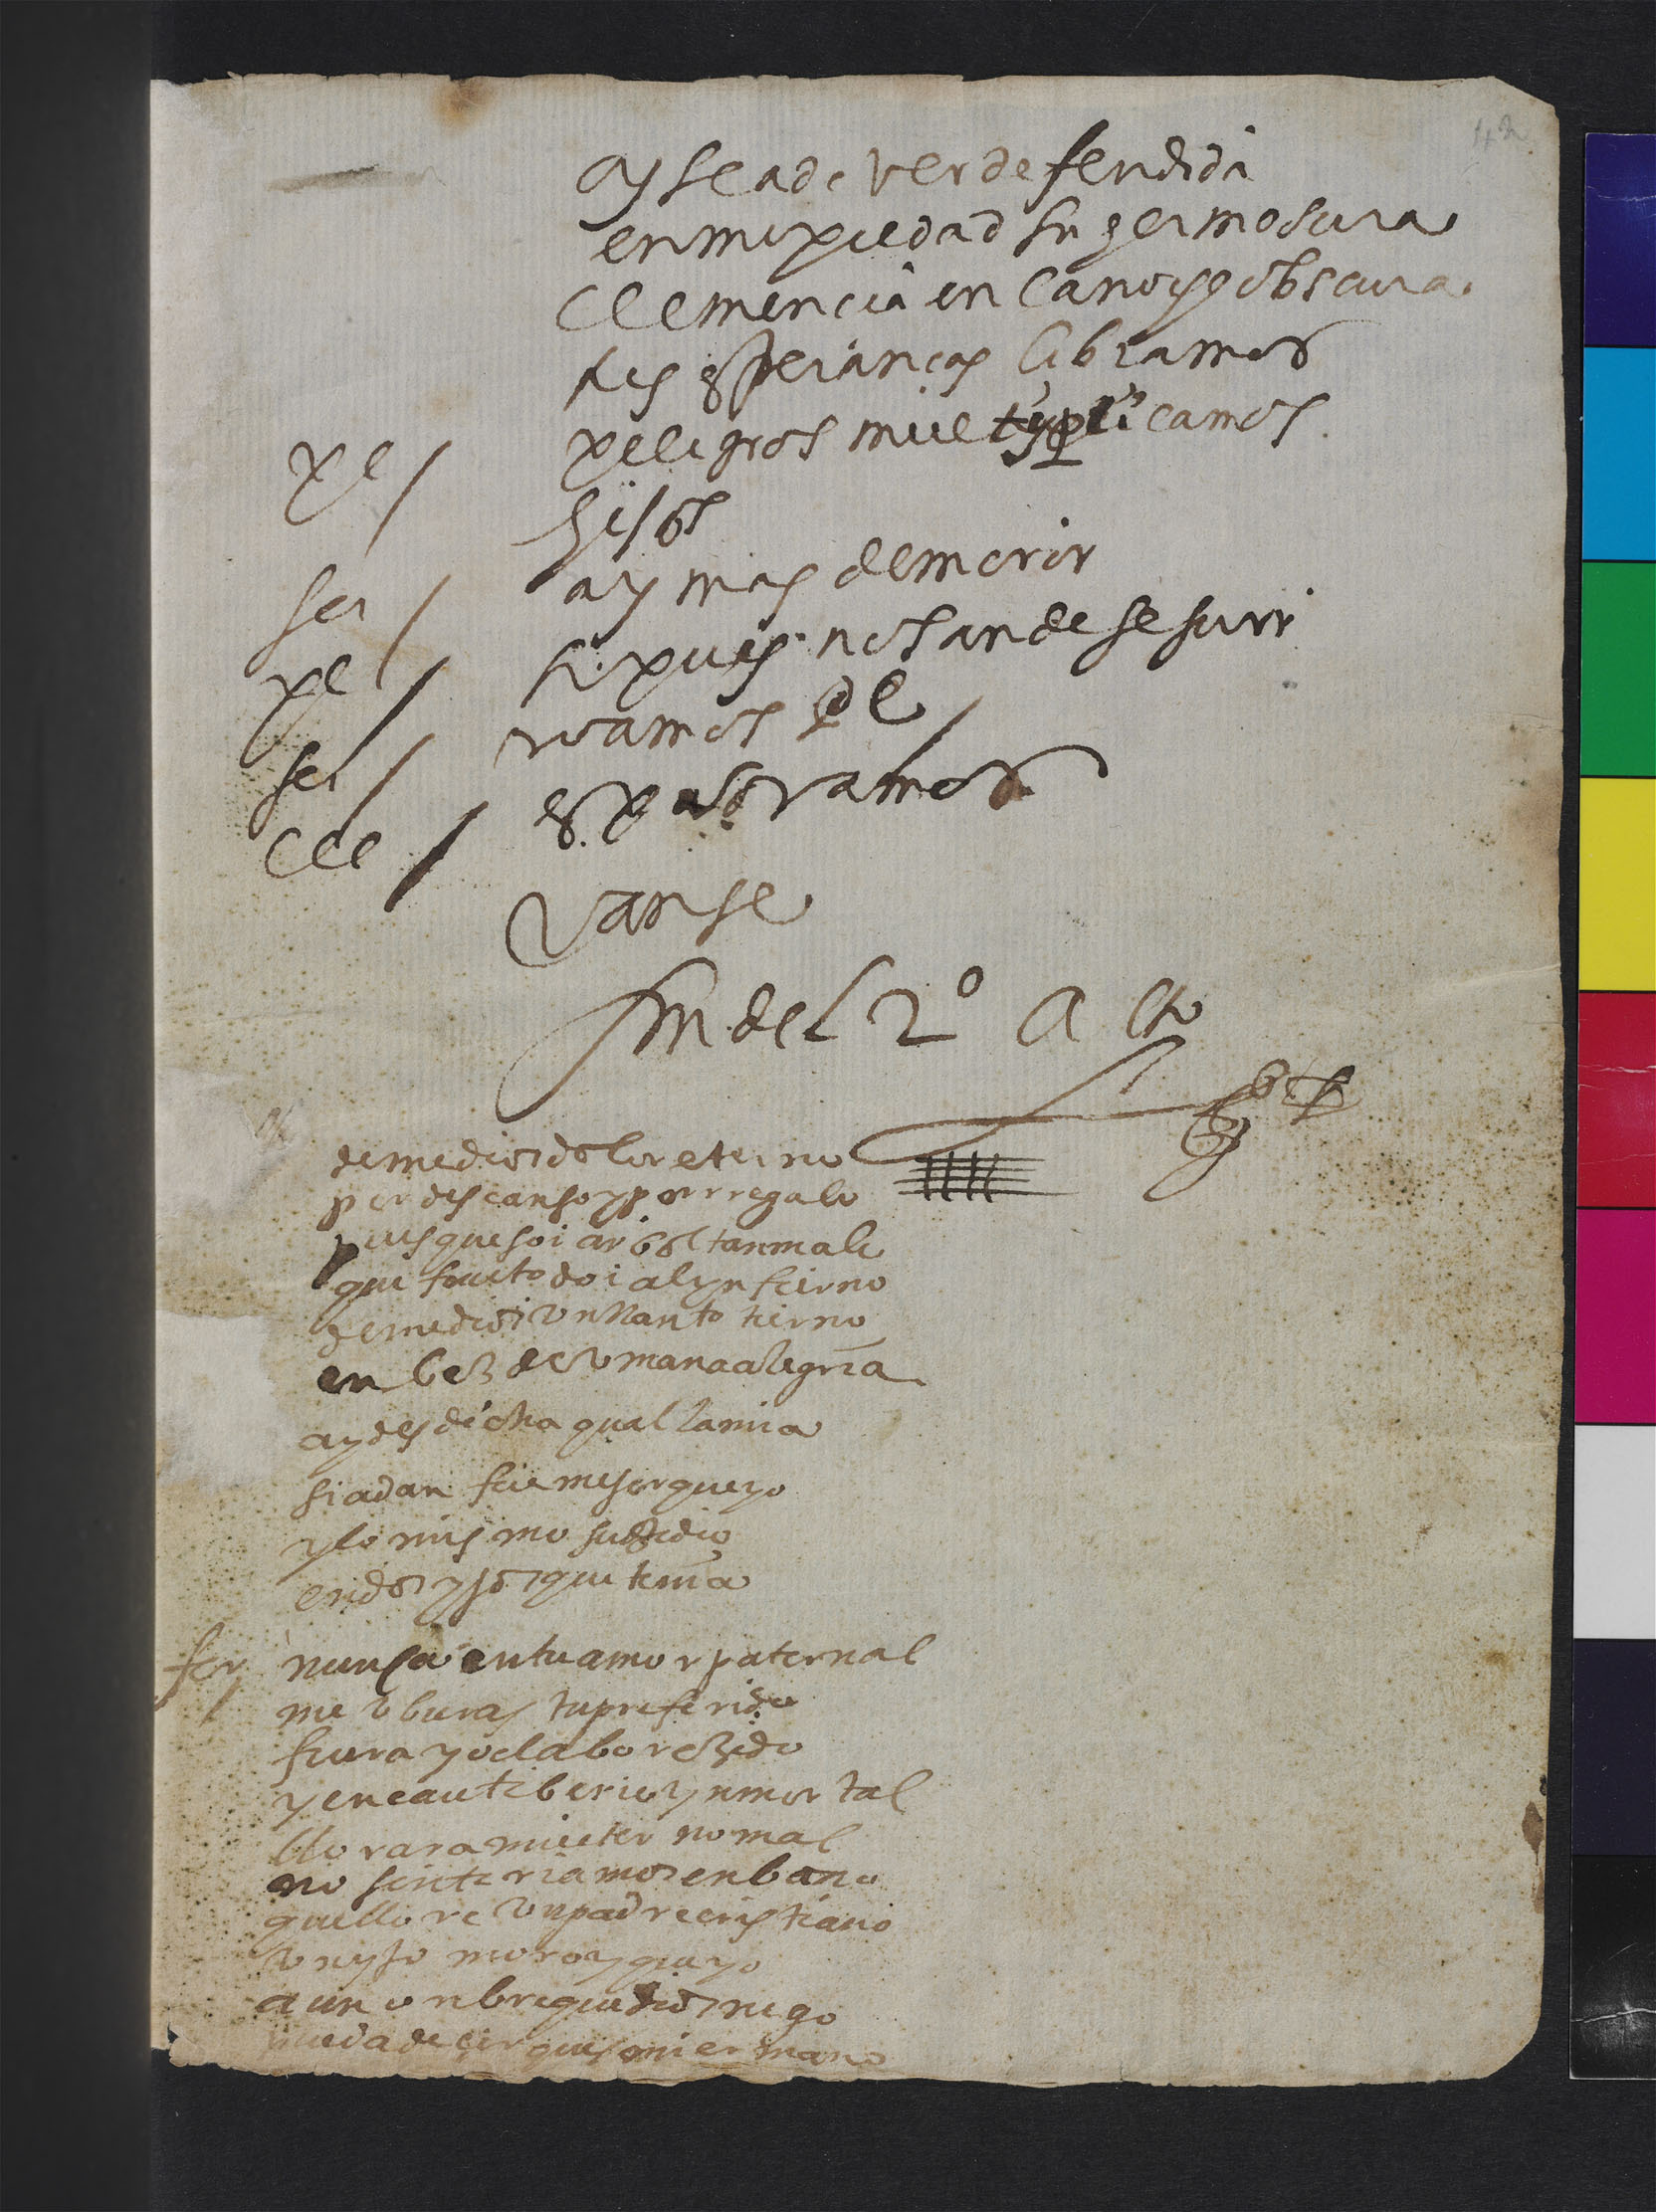 42
oy se a de ver defendida
en mi piedad su germosura
Clemencia en la noche obscura
les esperanças libramos
pel / peligros mil typlicamos
hijos
ser / ay mas de morir
pel / si pues nos an de seguir
ser / vamos pel /
Cle / es para vamos
vanse
fin del 2º acto
deme dios dolor eterno
por descanso y por regalo
pues que soi arbol tan malo
que fruto doi al ynfierno
deme dios vn llanto tierno
en bez de vmana alegria
ay desdicha qual la mia
si adan fue mejor que yo
y lo mismo suzedio
en dos yjos que tenia
fer / nunca en tu amor paternal
me vbieras tu preferido
fuera yo el aborezido
y en cautiberio ynmortal
llorara mi eterno mal
no sintieriamos en bano
que llore vn padre cristiano
vn yjo moro y que yo
a un onbre que dios nego
pueda decir que es mi ermano